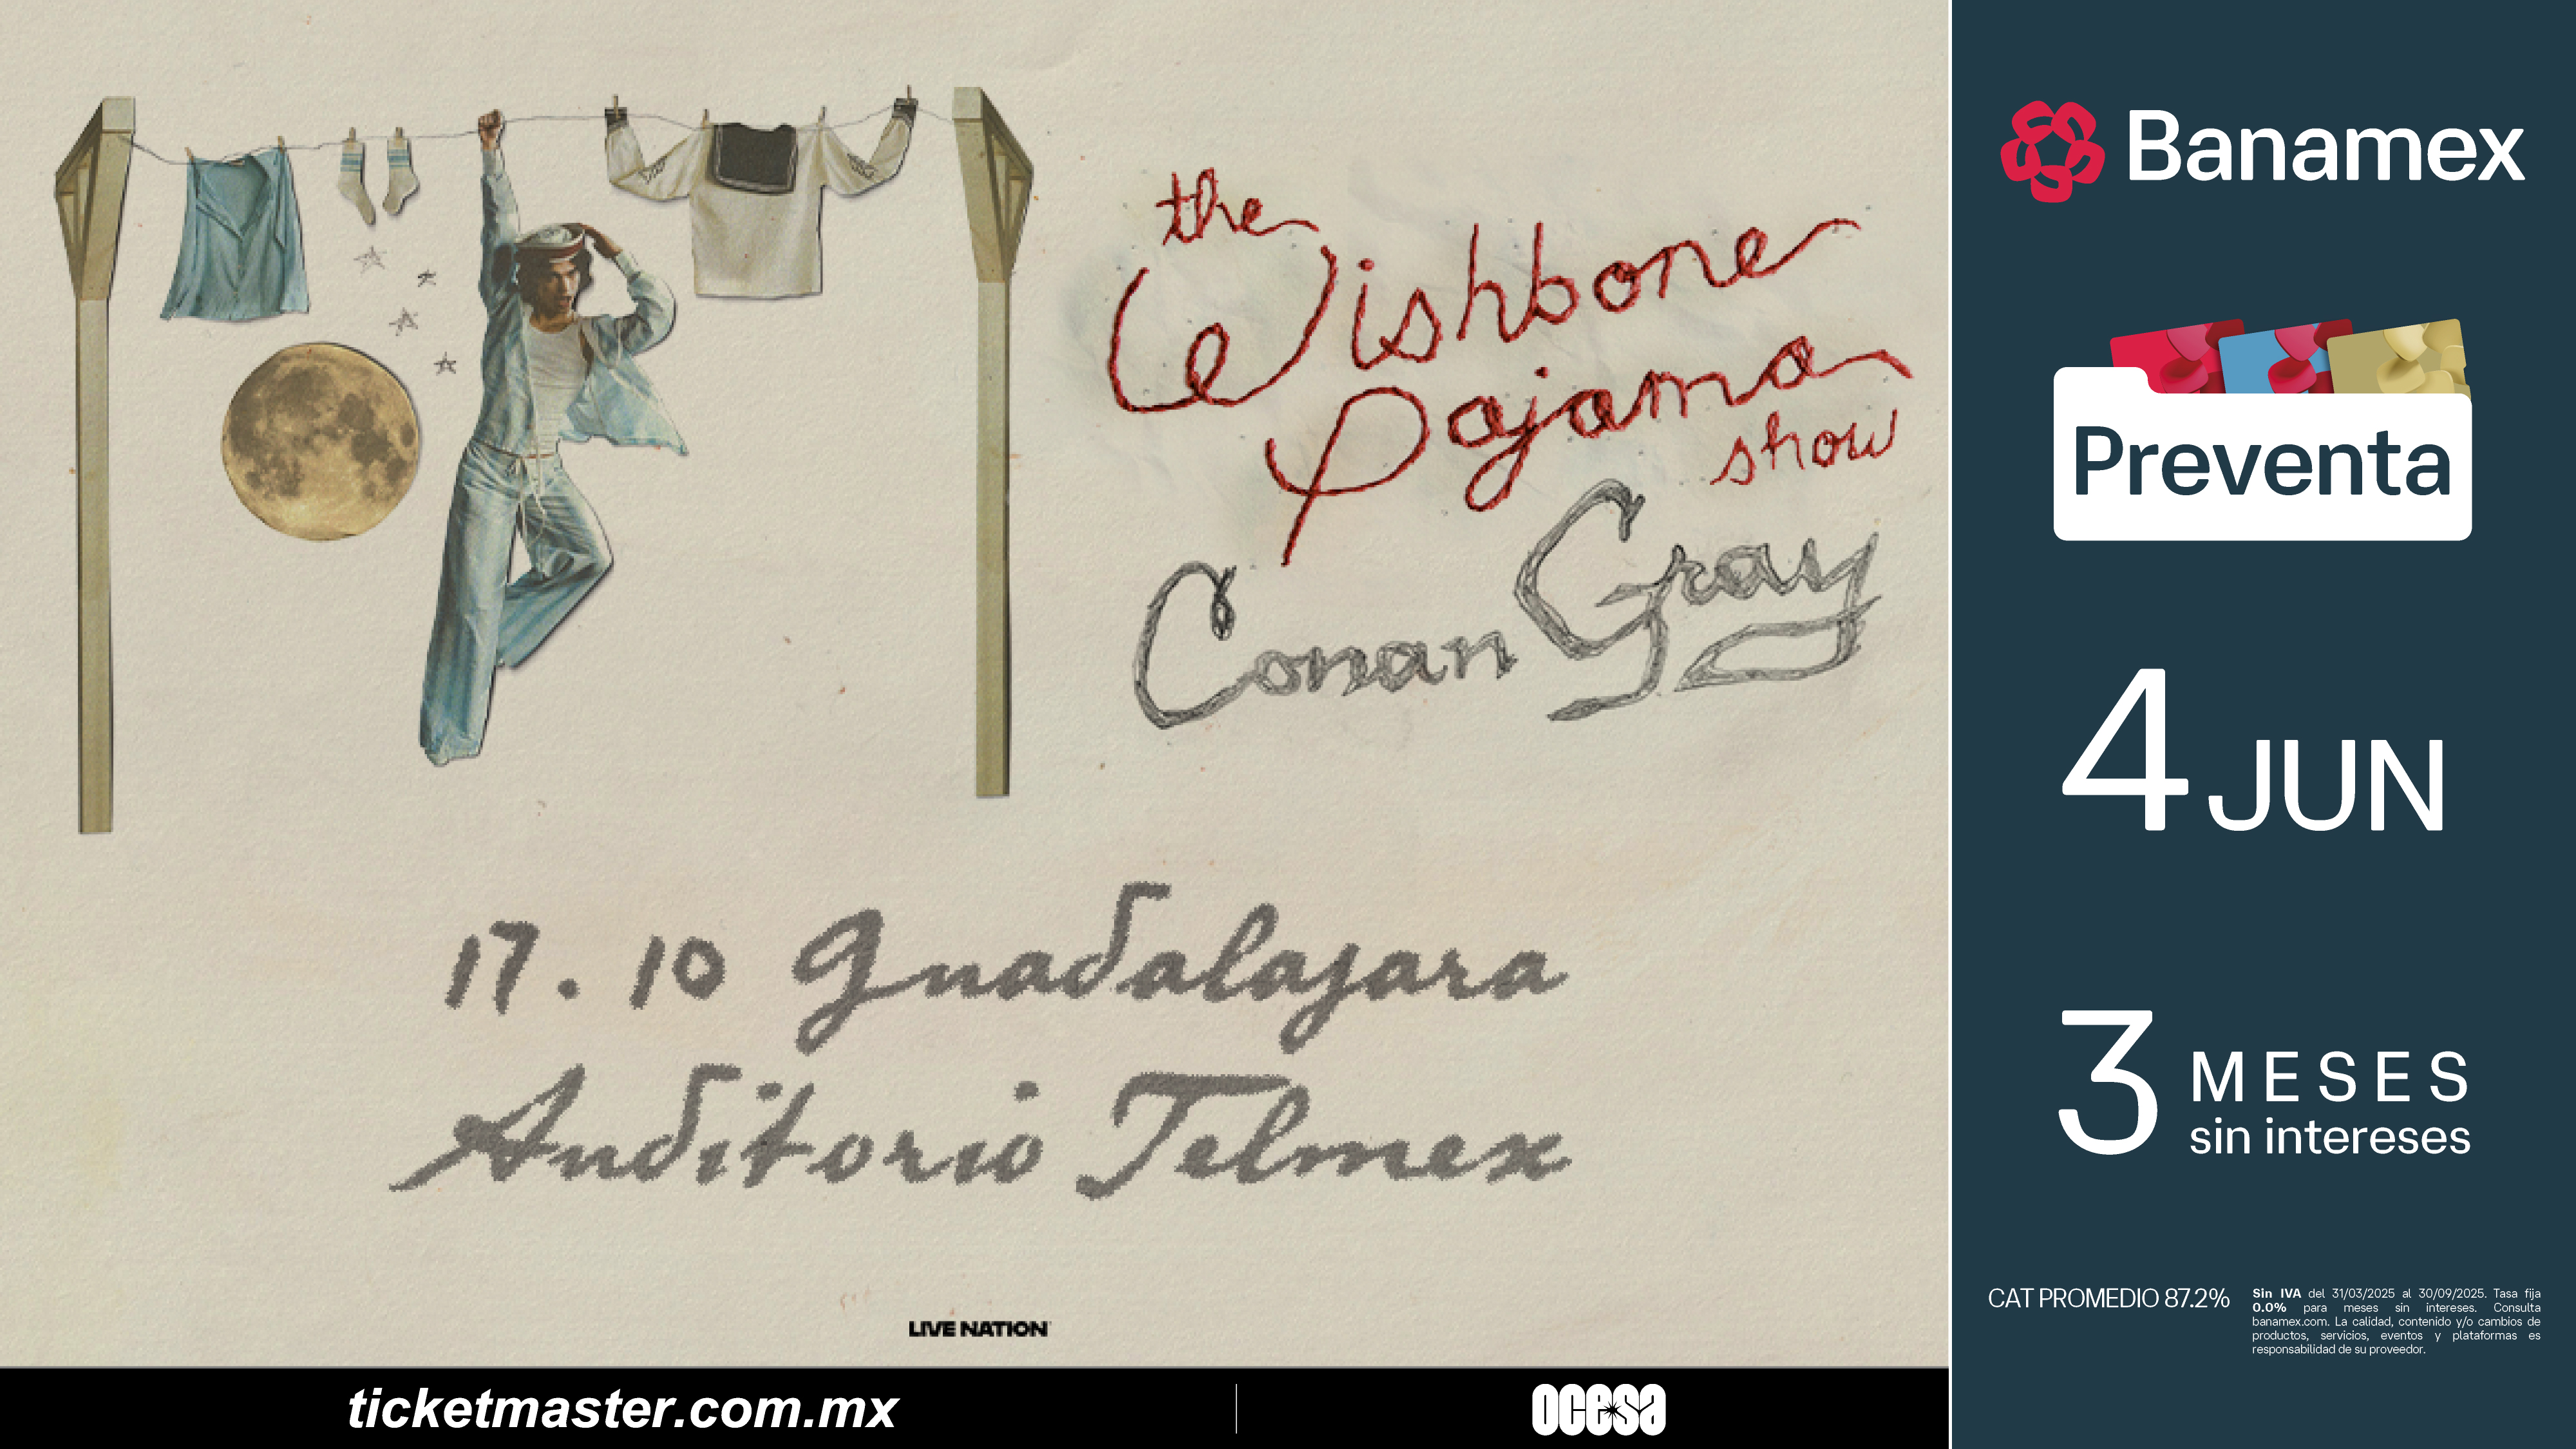 the
Wishbone
Pajama
show
Conan Gray
17.10 Guadalajara
Auditorio Telmex
LIVE NATION
ticketmaster.com.mx
ocesa
Banamex
Preventa
4 JUN
3 MESES
sin intereses
CAT PROMEDIO 87.2%
Sin IVA del 31/03/2025 al 30/09/2025. Tasa fija
0.0% para meses sin intereses. Consulta
banamex.com. La calidad, contenido y/o cambios de
productos, servicios, eventos y plataformas es
responsabilidad de su proveedor.